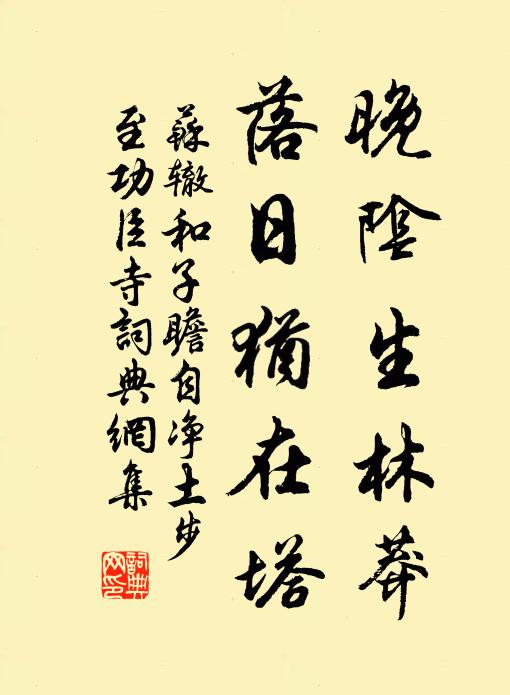 晚陰生林莽
落日猶在塔
蘇轍和子瞻自淨土步
至功臣寺詞典網集
詞典
网印